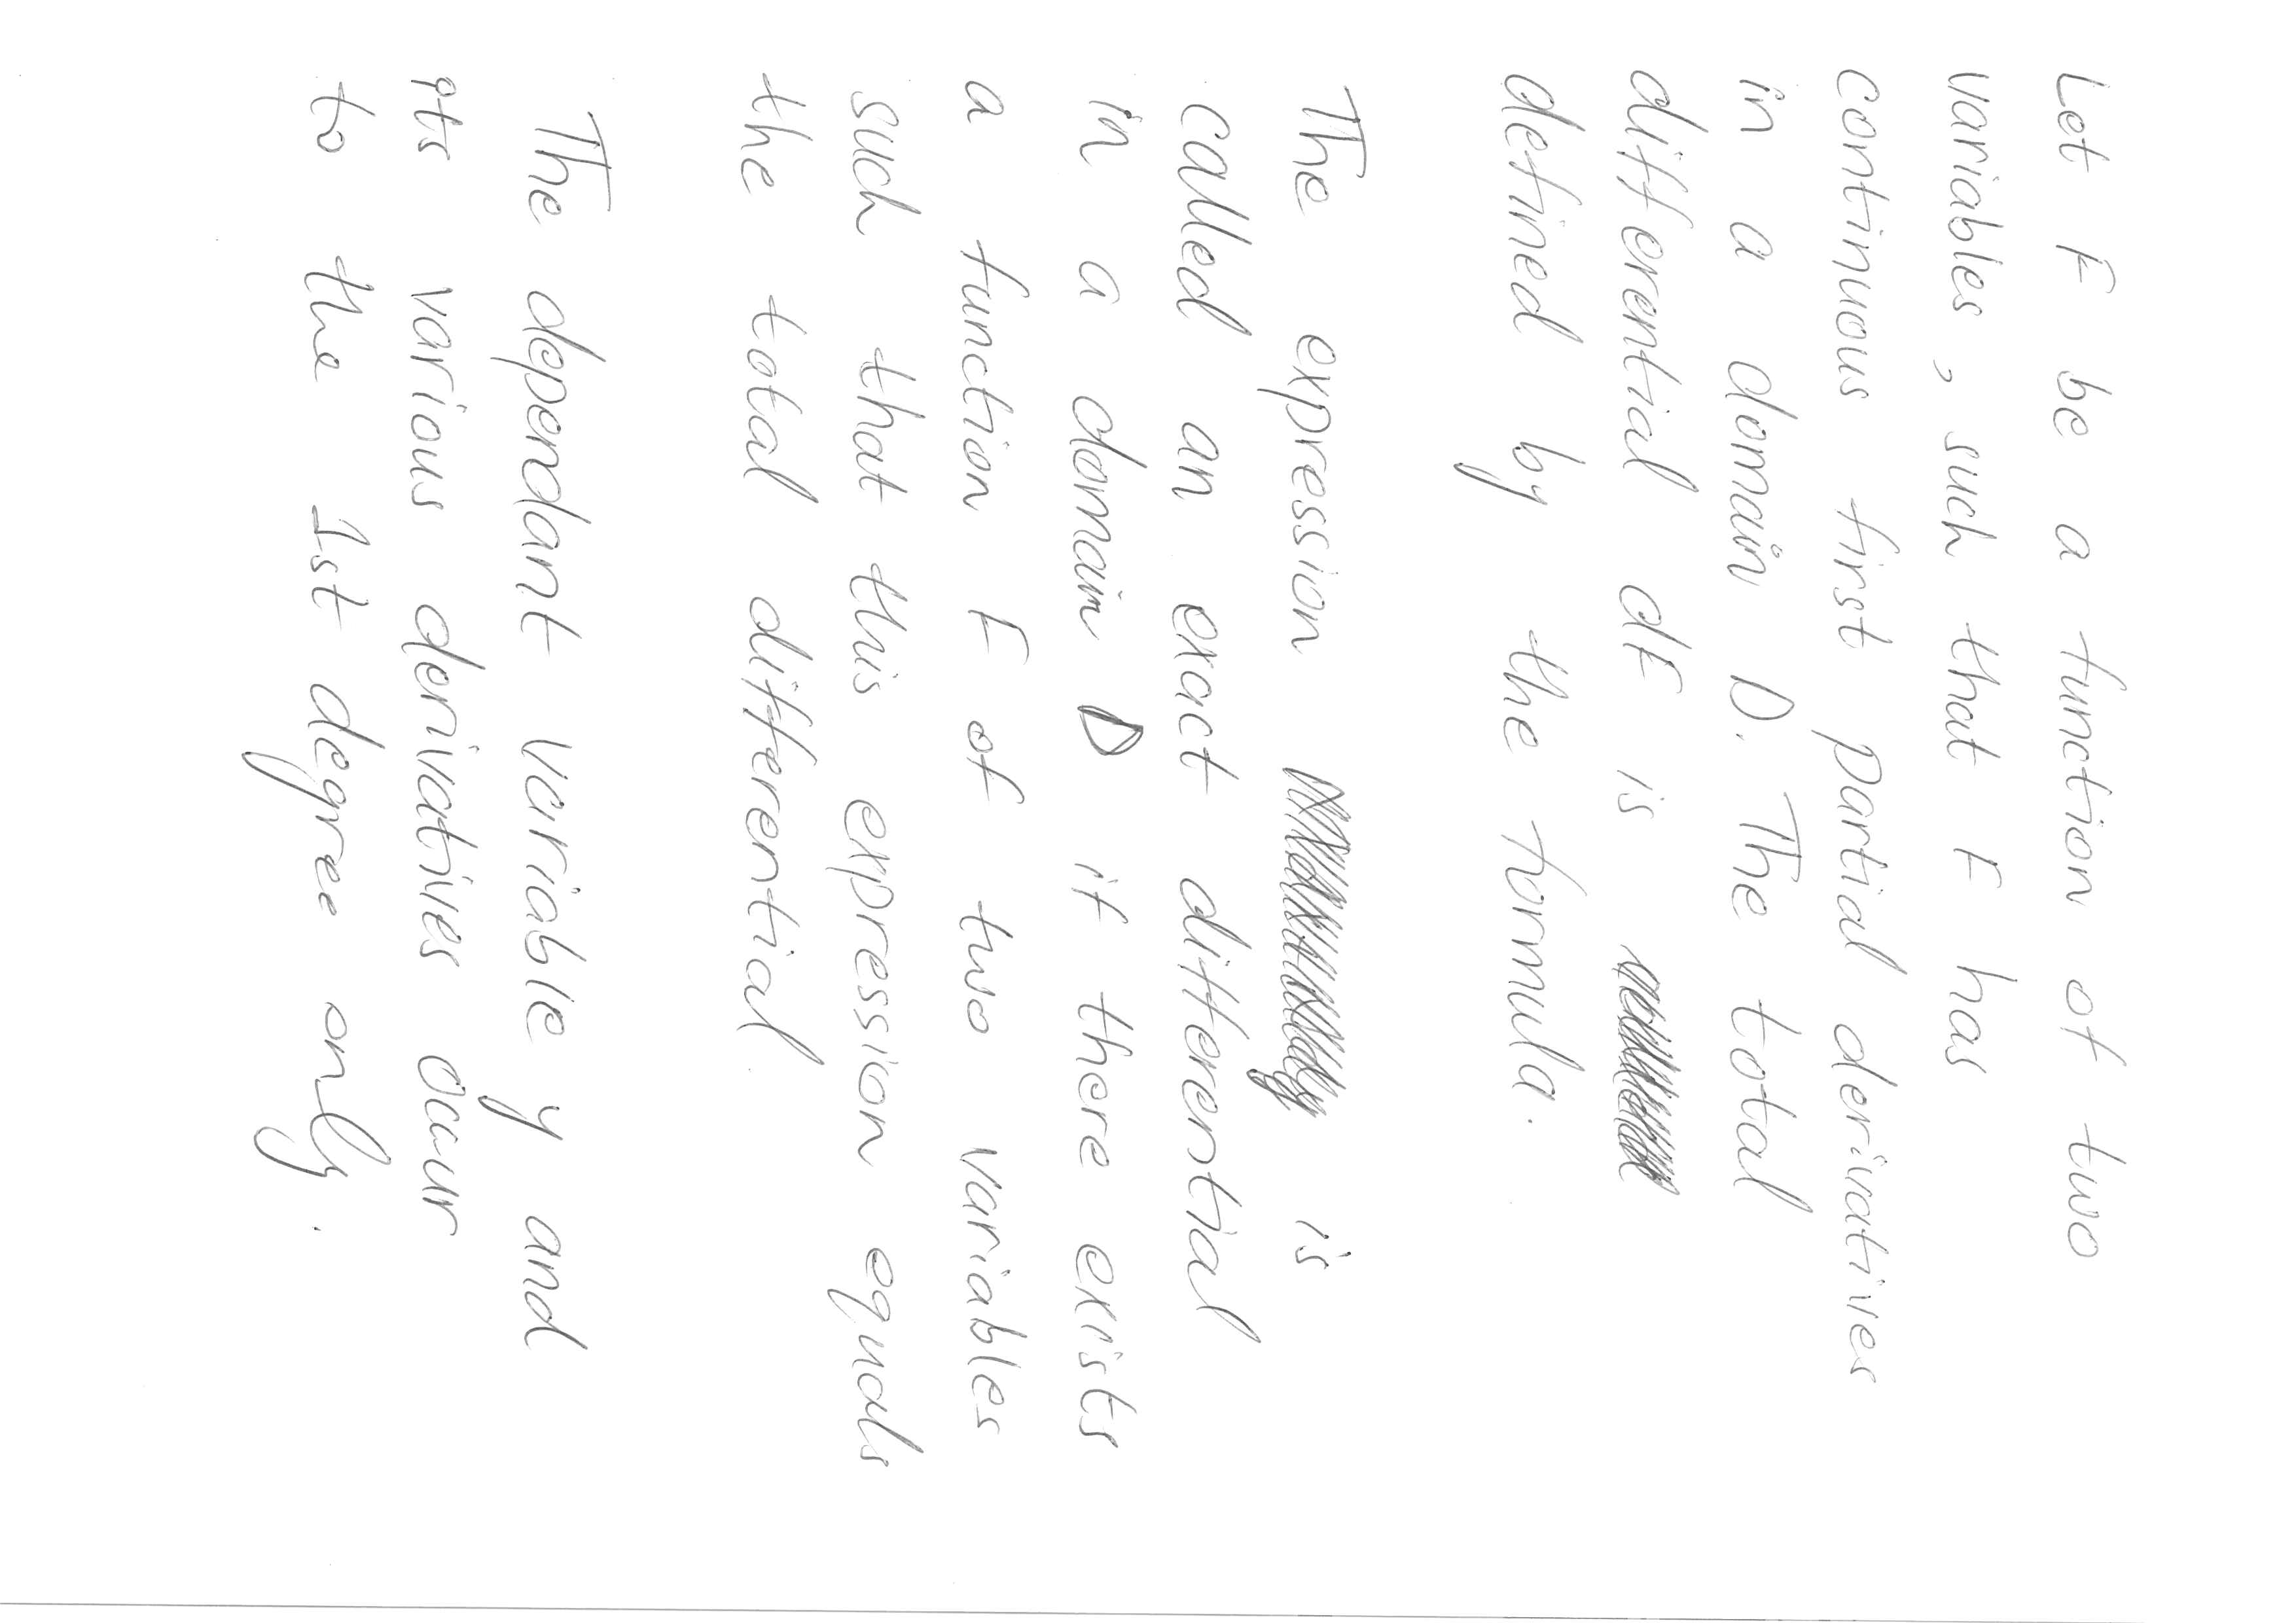 Let F be a function of two
variables, such that F has
continuous first partial derivatives
in a domain D. The total
differential dF is
defined by the formula.
The expression is
called an exact differential
in a domain D if there exists
a function F of two variables
such that this expression equals
the total differential.
The dependant variable y and
its various derivatives occur
to the 1st degree only.